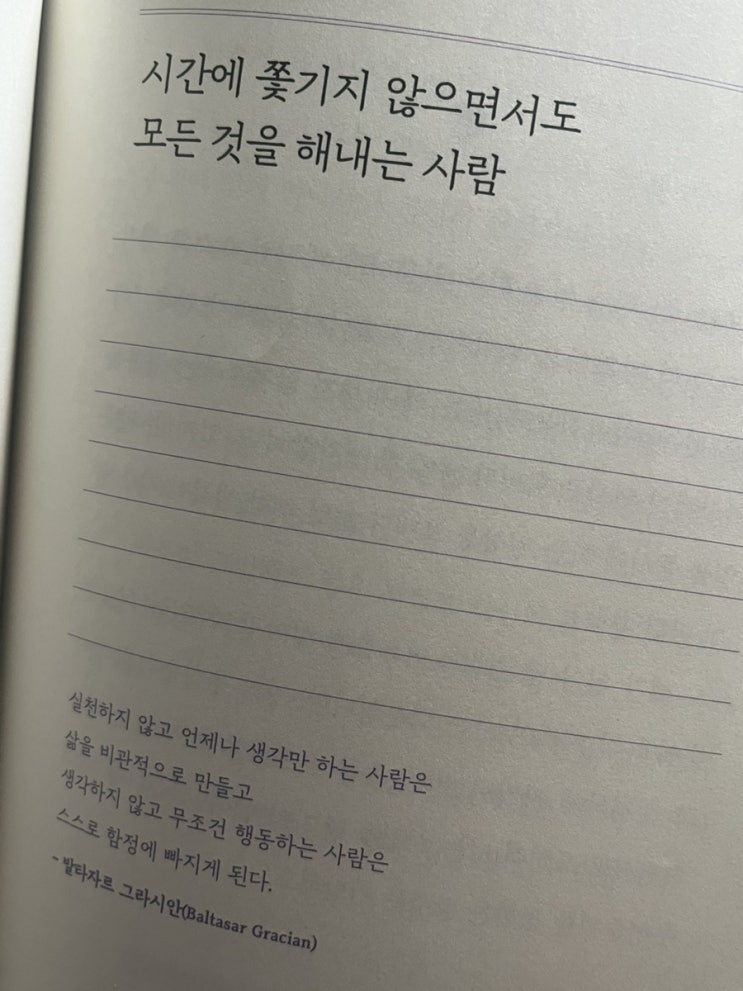 시간에 쫓기지 않으면서도
모든 것을 해내는 사람
실천하지 않고 언제나 생각만 하는 사람은
삶을 비관적으로 만들고
생각하지 않고 무조건 행동하는 사람은
스스로 함정에 빠지게 된다.
- 발타자르 그라시안(Baltasar Gracian)